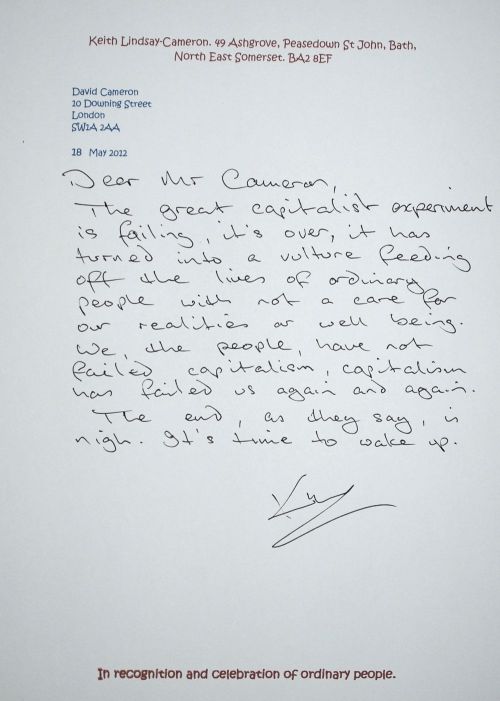 Keith Lindsay-Cameron. 49 Ashgrove, Peasedown St John, Bath,
North East Somerset. BA2 8EF
David Cameron
10 Downing Street
London
SW1A 2AA
18 May 2012
Dear Mr Cameron,
The great capitalist experiment
is failing, it's over, it has
turned into a vulture feeding
off the lives of ordinary
people with not a care for
our realities or well being.
We, the people, have not
failed capitalism, capitalism
has failed us again and again.
The end, as they say, is
nigh. It's time to wake up.
In recognition and celebration of ordinary people.